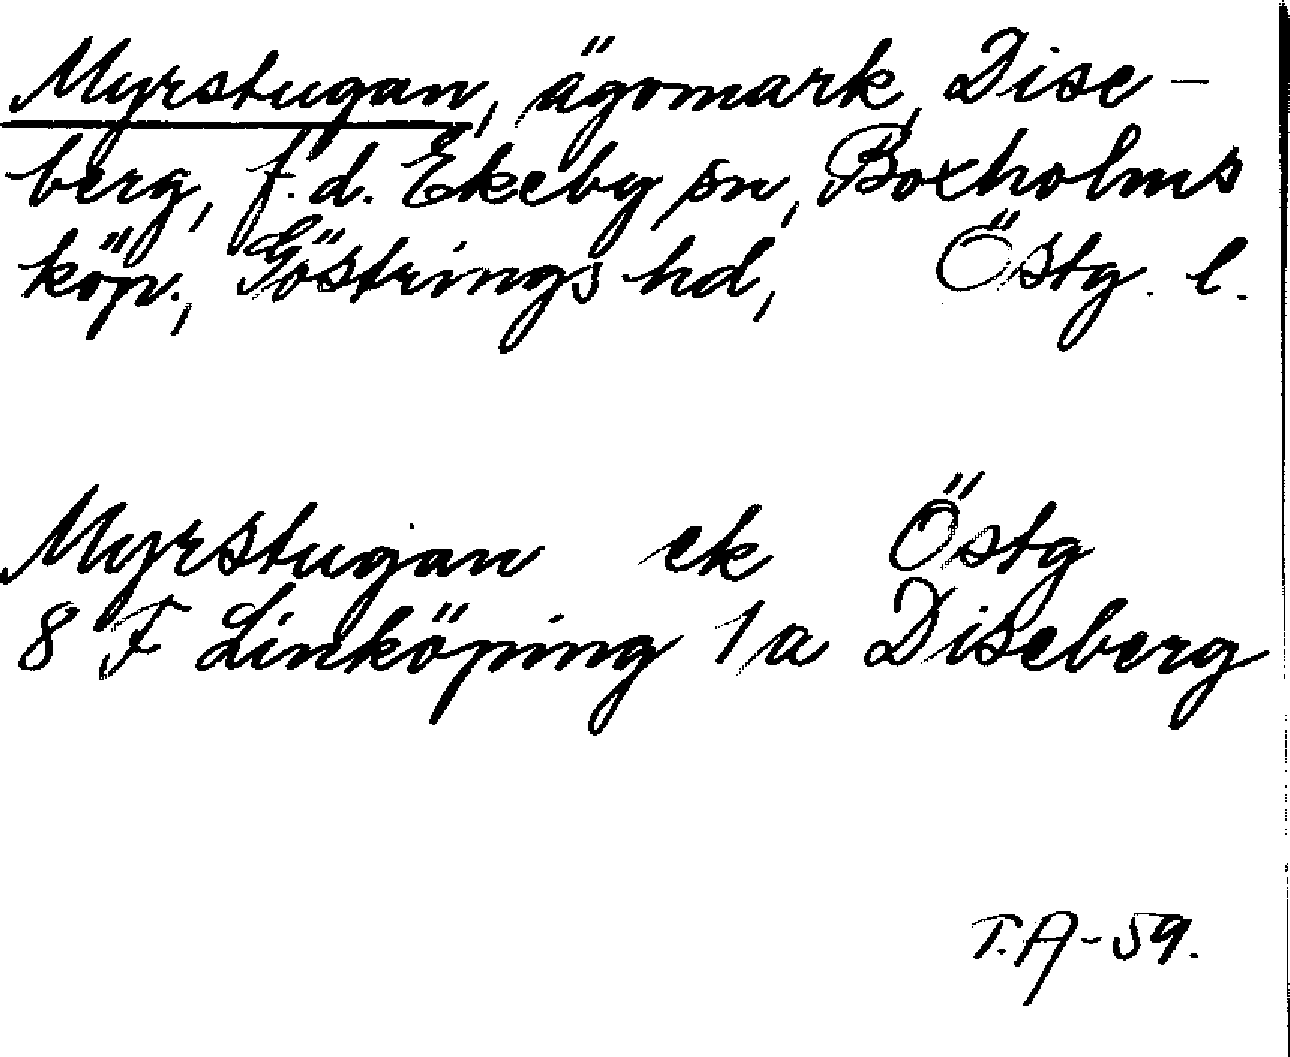 Myrstugan, ägomark, Dise-
berg, f.d. Ekeby sn, Boxholms
köp., Göstrings hd, Östg. l.
Myrstugan ek Östg
8 F Linköping 1a Diseberg
T.A-59.